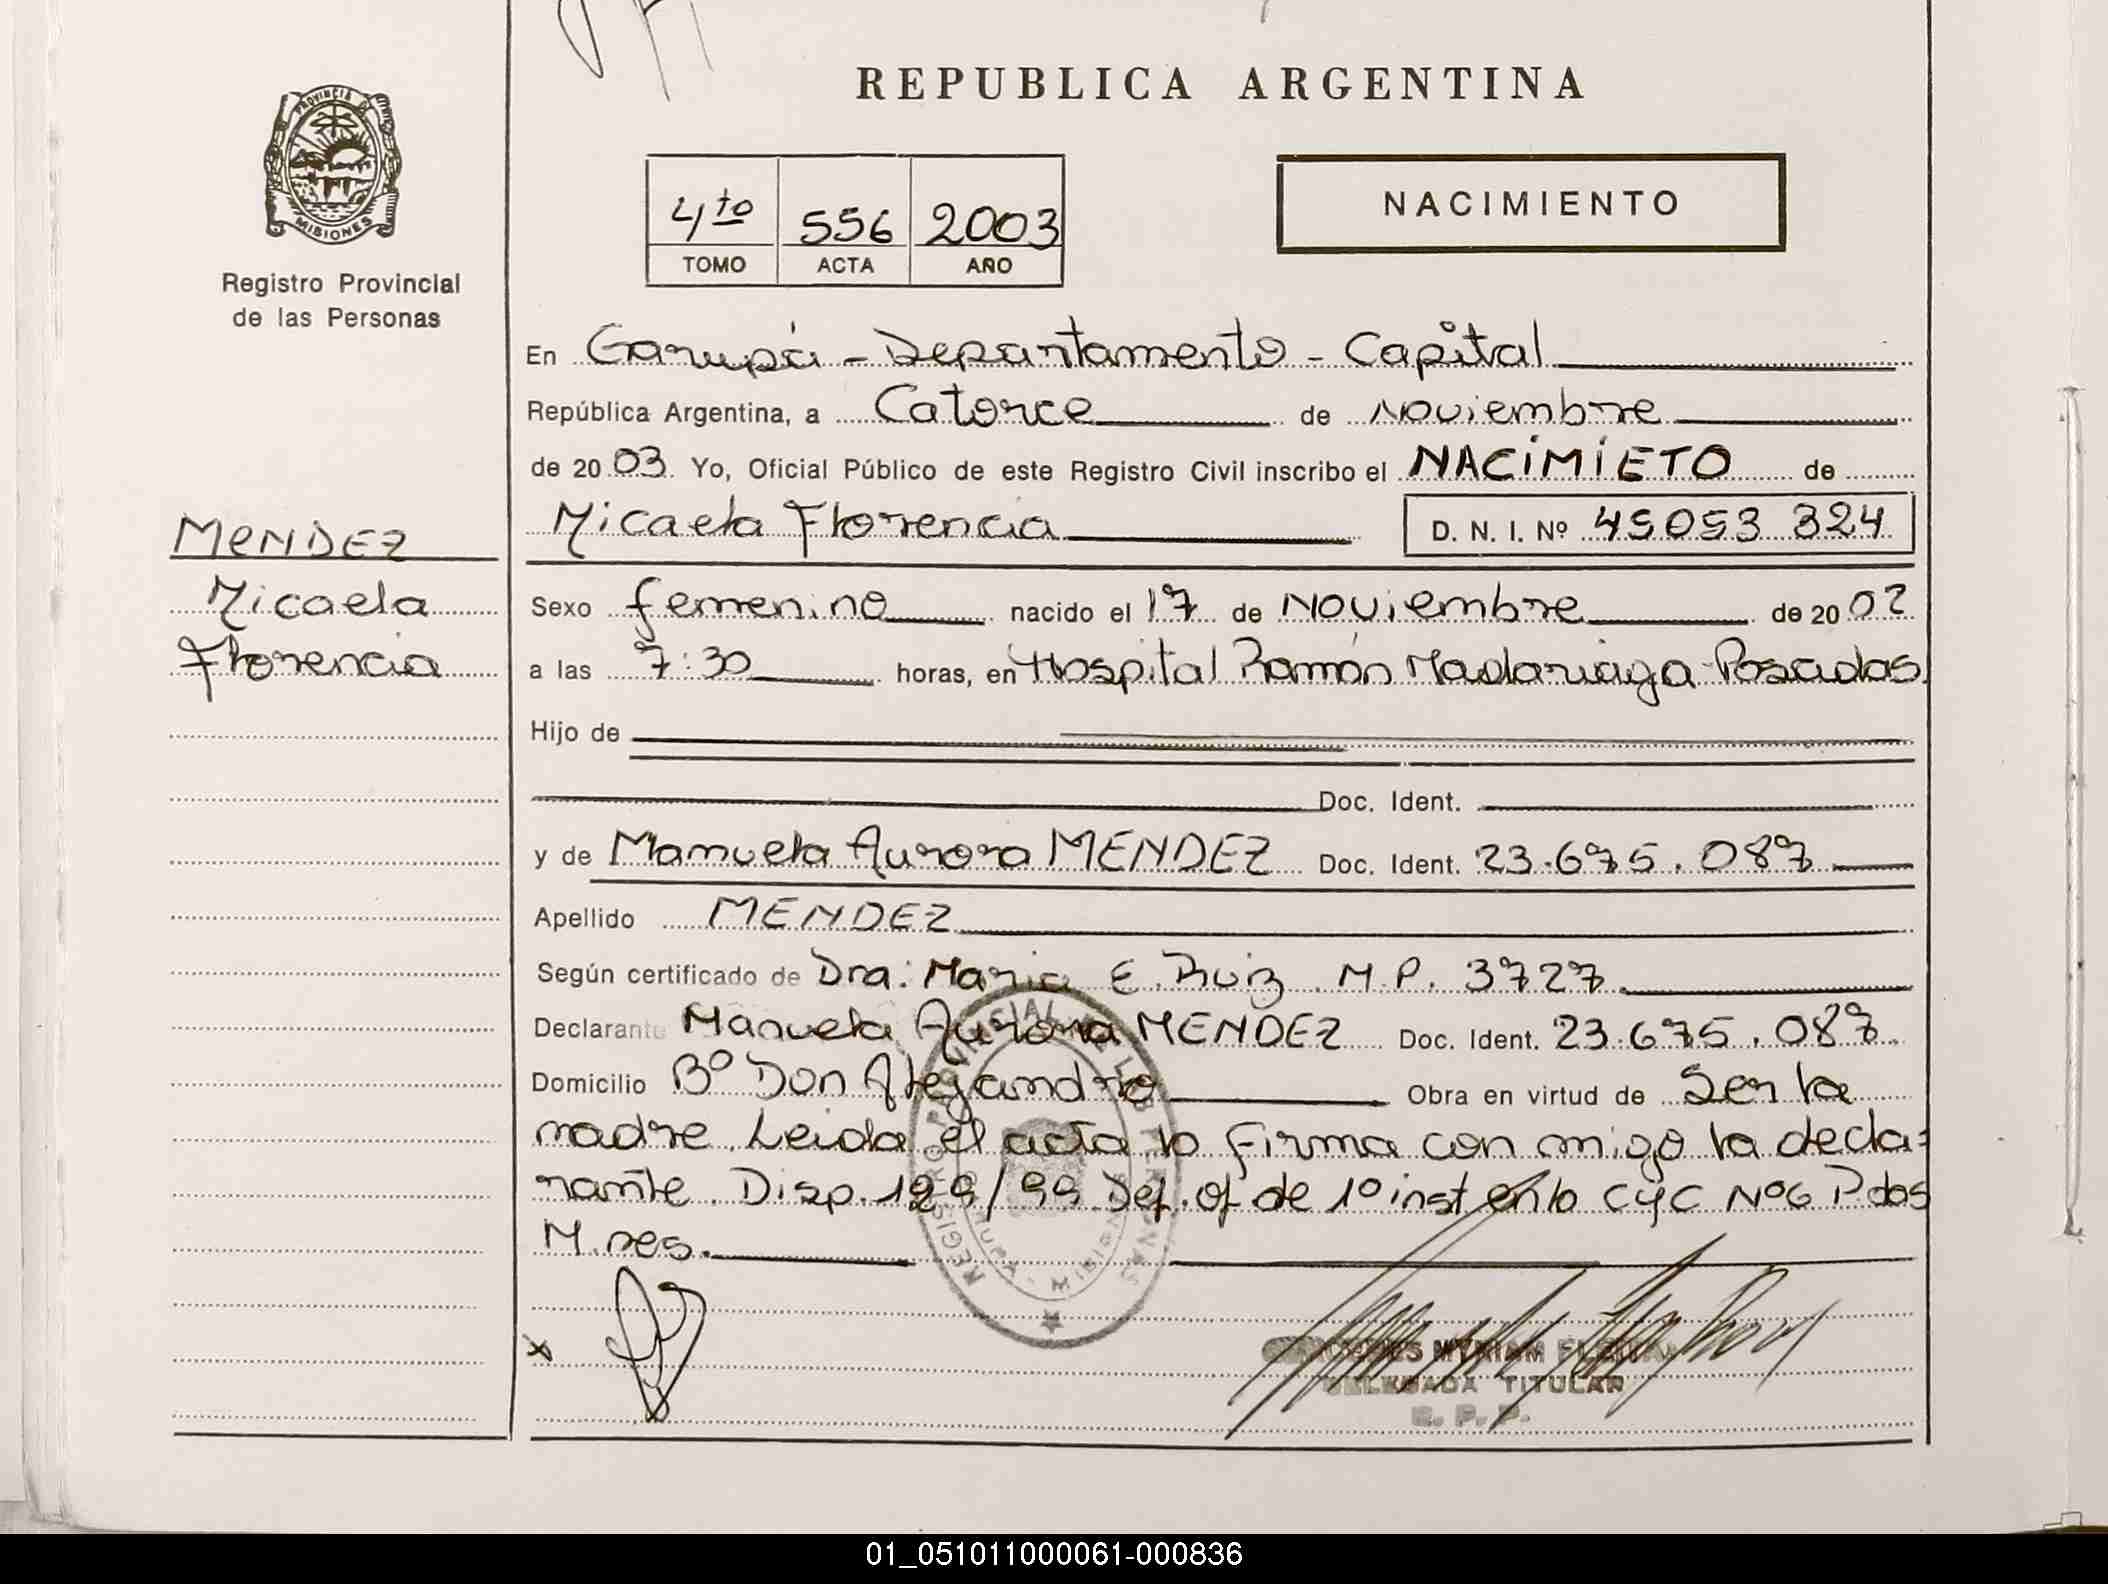 REPUBLICA ARGENTINA
PROVINCIA DE
MISIONES
Registro Provincial
de las Personas
4to 556 2003
TOMO ACTA AÑO
NACIMIENTO
En Garupá - Departamento - Capital
República Argentina, a Catorce de Noviembre
de 2003. Yo, Oficial Público de este Registro Civil inscribo el NACIMIETO de
Micaela Florencia D. N. I. Nº 45053 324
MENDEZ
Micaela
Florencia
Sexo femenino nacido el 17 de Noviembre de 2002
a las 7:30 horas, en Hospital Ramón Madariaga-Posadas.
Hijo de
Doc. Ident.
y de Manuela Aurora MENDEZ Doc. Ident. 23.675.087
Apellido MENDEZ
Según certificado de Dra: Maria E. Ruiz M.P. 3727.
Declarante Manuela Aurora MENDEZ Doc. Ident. 23.675.087.
Domicilio Bº Don Alejandro Obra en virtud de Ser la
madre. Leida el acta la firma con migo la decla=
rante. Disp. 129/99 Def. of. de 1º inst en lo CyC Nº6 P.das
M.nes.
REGISTRO PROVINCIAL DE LAS PERSONAS
MYRIAM
DELEGADA TITULAR
01_051011000061-000836